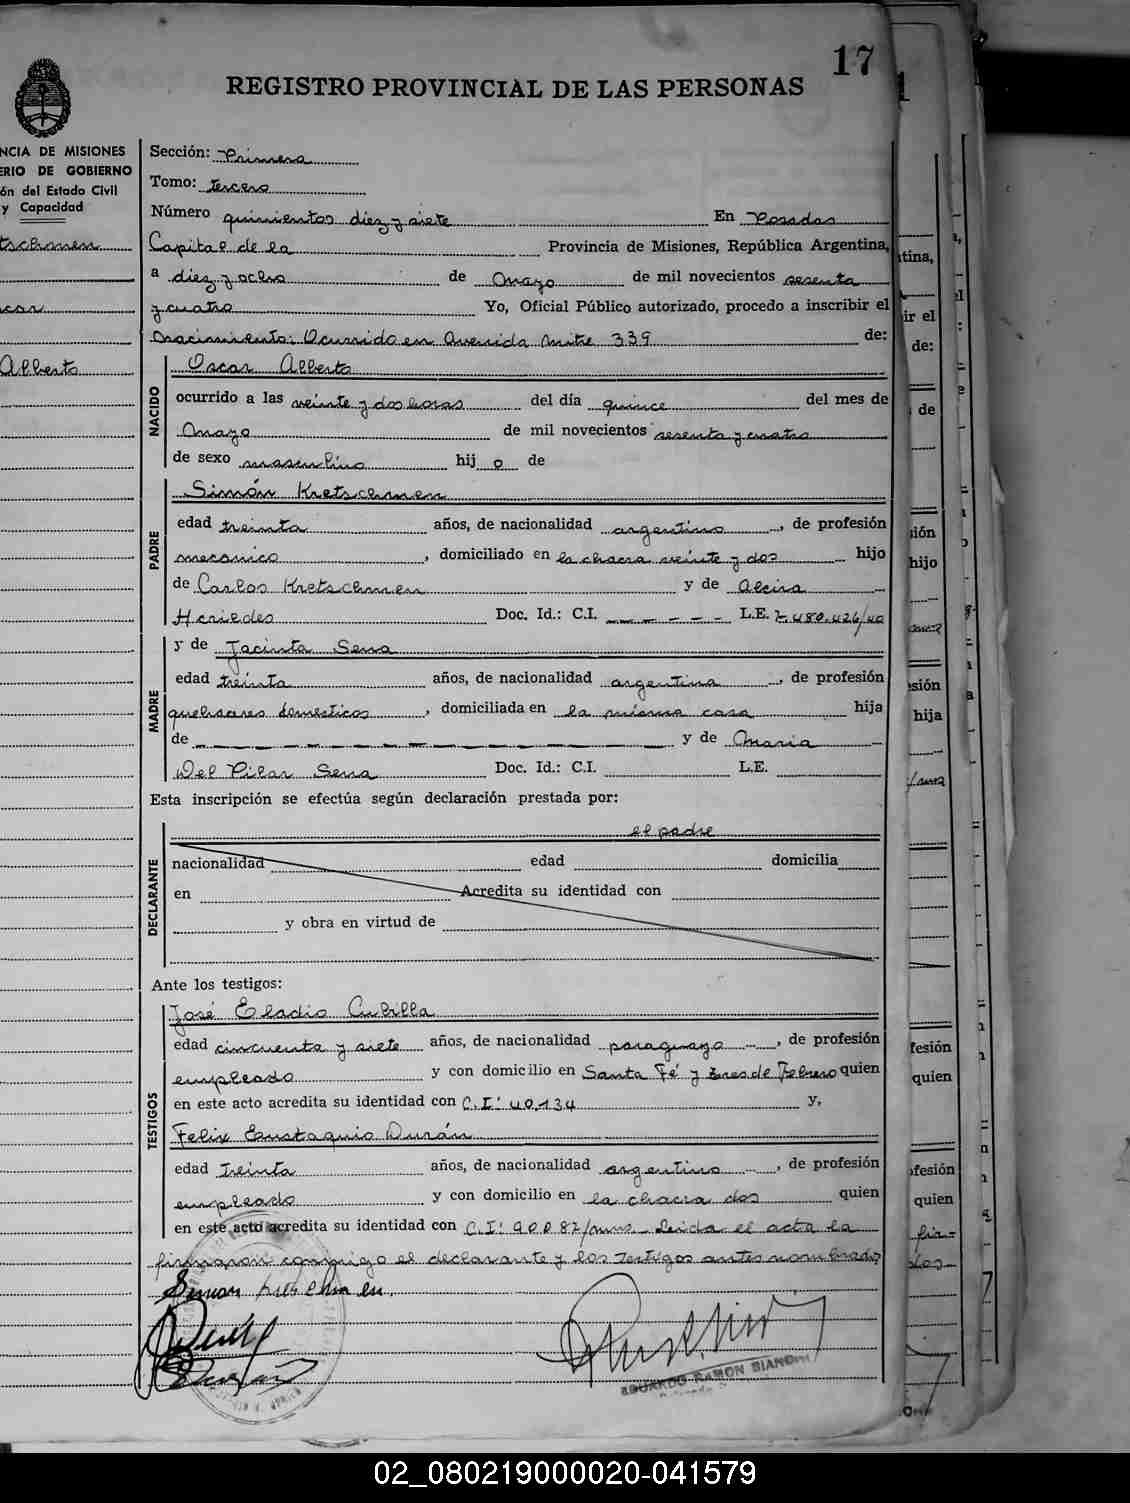 17
REGISTRO PROVINCIAL DE LAS PERSONAS
NCIA DE MISIONES
ERIO DE GOBIERNO
ón del Estado Civil
y Capacidad
tschmen
car
Alberto
Sección: Primera
Tomo: tercero
Número quinientos diez y siete En Posadas
Capital de la Provincia de Misiones, República Argentina,
a diez y ocho de Mayo de mil novecientos sesenta
y cuatro Yo, Oficial Público autorizado, procedo a inscribir el
Nacimiento: Ocurrido en Avenida Mitre 339 de:
NACIDO
Oscar Alberto
ocurrido a las veinte y dos horas del día quince del mes de
Mayo de mil novecientos sesenta y cuatro
de sexo masculino hij o de
PADRE
Simón Kretschmen
edad treinta años, de nacionalidad argentino, de profesión
mecanico, domiciliado en la chacra veinte y dos hijo
de Carlos Kretschmen y de Alcira
Doc. Id.: C.I. – – – – – L.E. 7.480.426/40
MADRE
y de Jacinta Sena
edad treinta años, de nacionalidad argentina, de profesión
quehaceres domesticos, domiciliada en la misma casa hija
de – – – – – – – – – – y de Maria
Del Pilar Sena Doc. Id.: C.I. L.E.
Esta inscripción se efectúa según declaración prestada por:
DECLARANTE
el padre
nacionalidad edad domicilia
en Acredita su identidad con
y obra en virtud de
Ante los testigos:
TESTIGOS
José Eladio Cubilla
edad cincuenta y siete años, de nacionalidad paraguayo, de profesión
empleado y con domicilio en Santa Fé y tres de Febrero quien
en este acto acredita su identidad con C.I: 40.134 y,
Felix Eustaquio Durán
edad treinta años, de nacionalidad argentino, de profesión
empleado y con domicilio en la chacra dos quien
en este acto acredita su identidad con C.I: 90.087/mns. Leida el acta la
firmaron conmigo el declarante y los testigos antes nombrados
EDUARDO RAMON
02_080219000020-041579